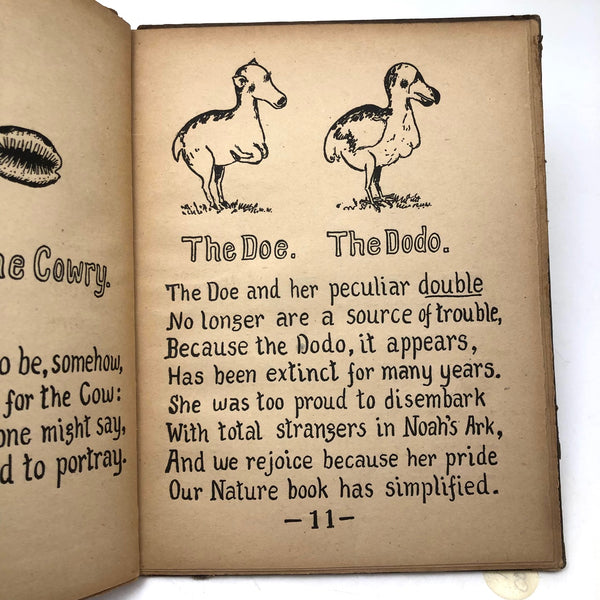 he Cowry.
o be, somehow,
for the Cow:
one might say,
d to portray.
The Doe. The Dodo.
The Doe and her peculiar double
No longer are a source of trouble,
Because the Dodo, it appears,
Has been extinct for many years.
She was too proud to disembark
With total strangers in Noah's Ark,
And we rejoice because her pride
Our Nature book has simplified.
-11-